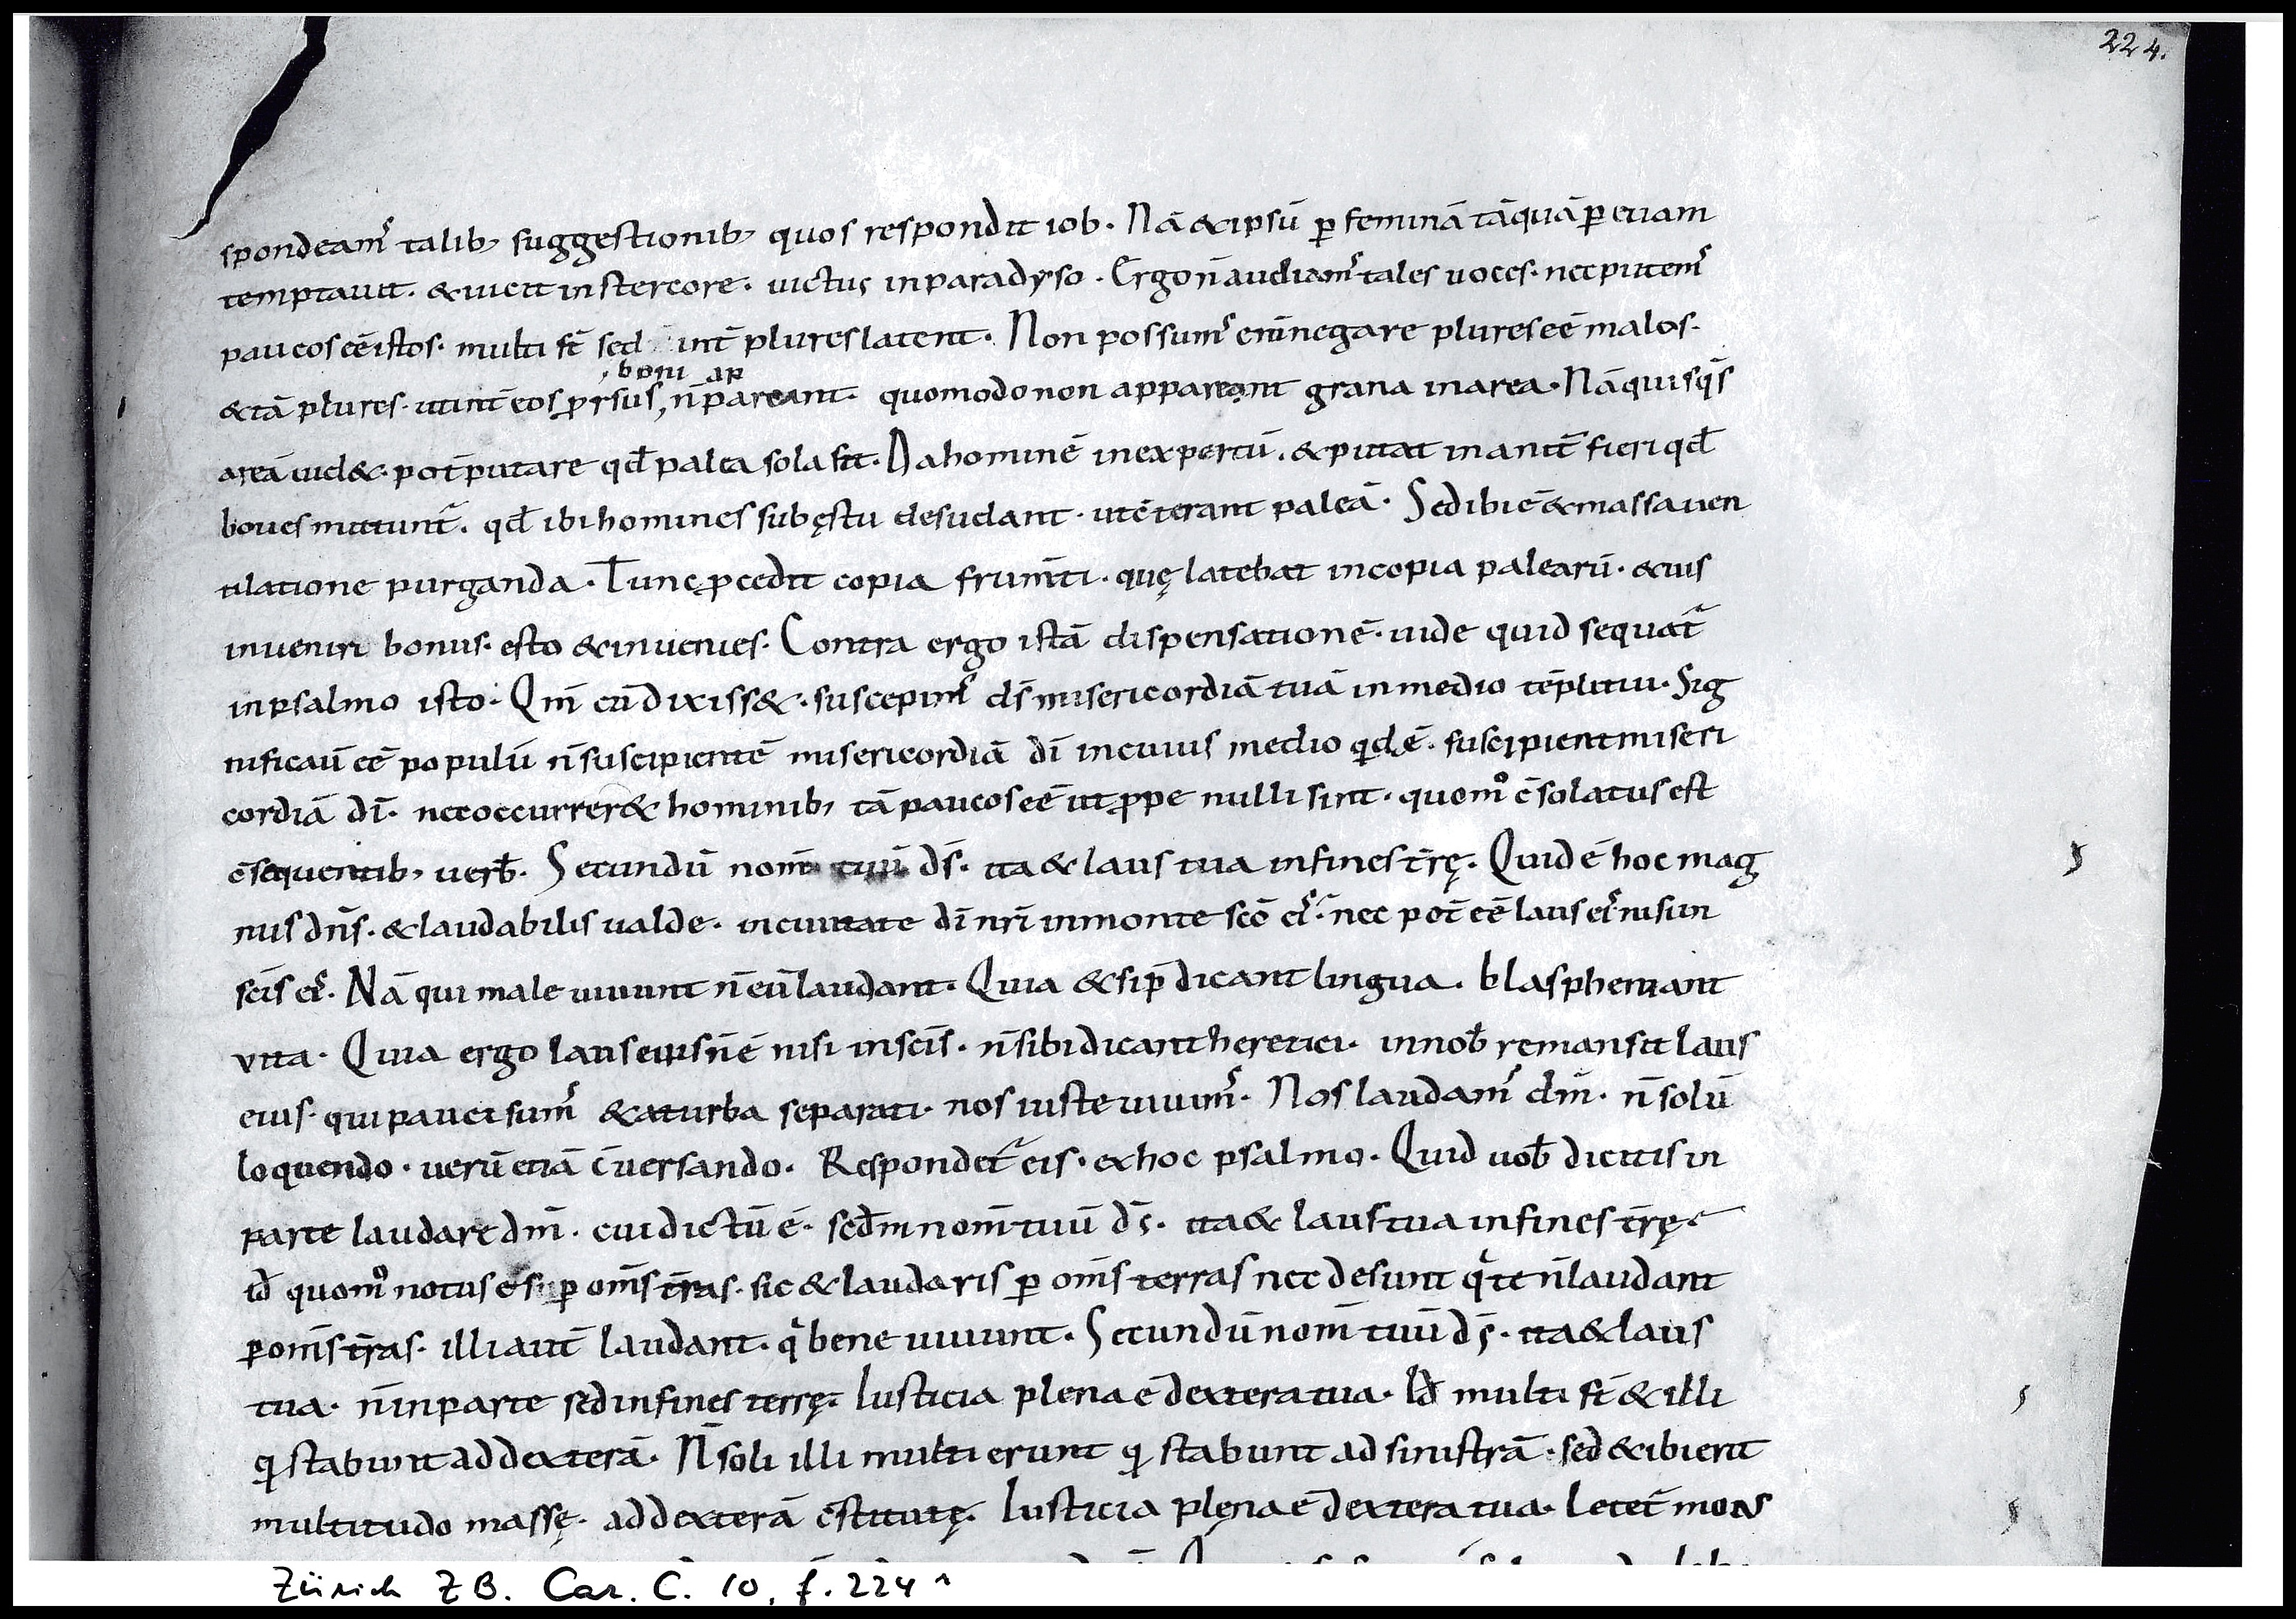 224.
spondeam᷒ talib; suggestionib; quos respondit iob. Nā & ipsū ꝑ feminā tāquā ꝑ euam
temptauit. & uicit in stercore. uictus in paradyso. Ergo n̄ audiam᷒ tales uoces. nec putem᷒
paucos eē istos. multi st̄ sed int̄ plures latent. Non possum᷒ enī negare plures eē malos.
boni ap
& tā plures. ut int̄ eos ꝓrsus, n̄ pareant. quomodo non appareant grana in area. Nā quisq̄s
areā uid&. pot̄ putare qd̄ palea sola sit. Da hominē inexpertū. & putat inanit̄ fieri qd̄
boues mittunt̄. qd̄ ibi homines sub ęstu desudant. ut c̄terant paleā. Sed ibi ē & massa uen
tilatione purganda. Tunc ꝓcedit copia frum̄ti. quę latebat in copia palearū. & uis
inuenire bonus. esto & inuenies. Contra ergo istā dispensationē. uide quid sequat̄
in psalmo isto. Qm̄ cū dixiss&. suscepim᷒ ds̄ misericordiā tuā in medio tēpli tui. Sig
nificauit eē populū n̄ suscipientē misericordiā dī in cuius medio qdā ē. suscipient miseri
cordiā dī. nec occurrer& hominib; tā paucos eē ut ꝓpe nulli sint. quomᵒ c̄solatus est
c̄sequentib; uerb̄. Secundū nom̄ tuū ds̄. ita & laus tua in fines tr̄ę. Quid ē hoc mag
nus dn̄s. & laudabilis ualde. in ciuitate dī nr̄i in monte scō ei᷒. nec pot̄ eē laus ei᷒. nisi in
scīs ei᷒. Nā qui male uiuunt n̄ eū laudant. Quia & si p̄dicant lingua. blasphemant
vita. Quia ergo laus eius n̄ ē nisi in scīs. n̄ sibi dicant heretici. in nob̄ remansit laus
eius. qui pauci sum᷒ & a turba separati. nos iuste uiuim᷒. Nos laudam᷒ dm̄. n̄ solū
loquendo. uerū etiā c̄uersando. Respondet̄ eis. ex hoc psalmo. Quid uob̄ dicitis in
parte laudare dm̄. cui dictū ē. scd̄m nom̄ tuū ds̄. ita & laus tua in fines tr̄ę.
id̄ quomᵒ notus es ꝑ om̄s tr̄as. sic & laudaris ꝑ om̄s terras nec desunt qⁱ te n̄ laudant
ꝑ om̄s tr̄as. illi aut̄ laudant. qⁱ bene uiuunt. Secundū nom̄ tuū ds̄. ita & laus
tua. n̄ in parte sed in fines terrę. Iusticia plena ē dextera tua. Id̄ multi st̄ & illi
qⁱ stabunt ad dexterā. N̄ soli illi multi erunt qⁱ stabunt ad sinistrā. sed & ibi erit
multitudo massę. ad dexterā c̄stitutę. Iusticia plena ē dextera tua. Letet̄ mons
Zürich ZB. Car. C. 10, f. 224 r